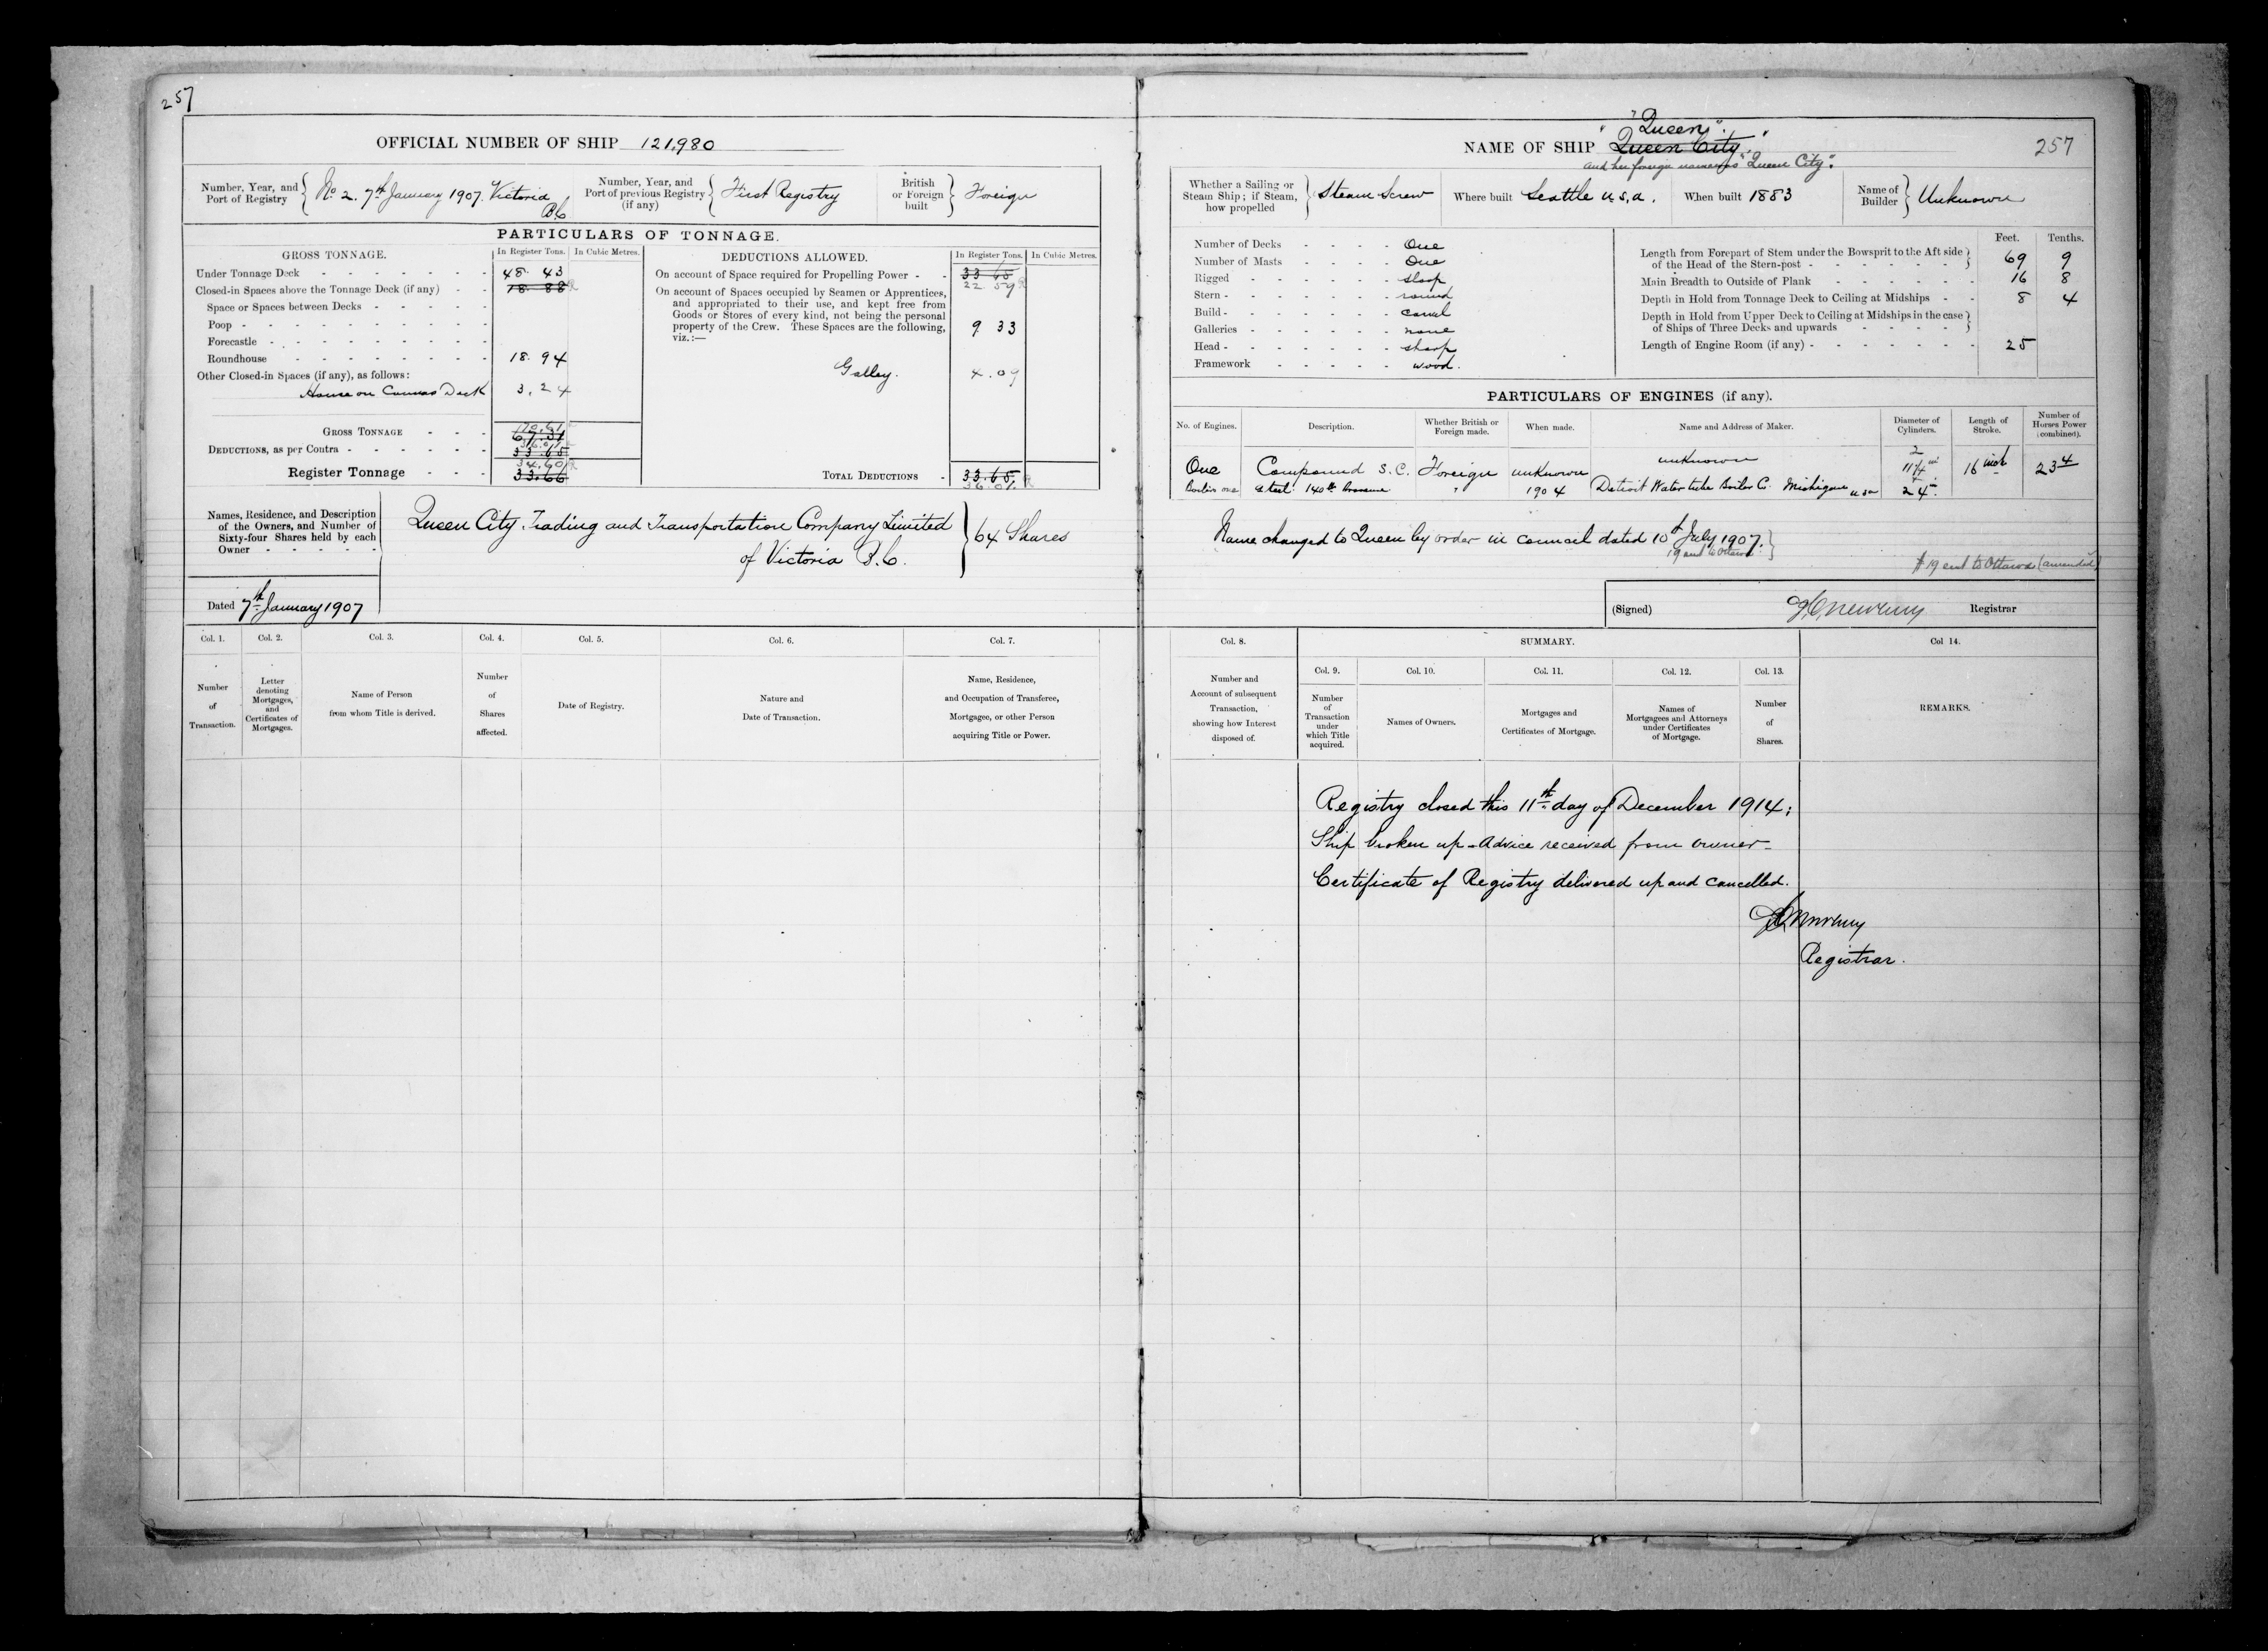 257
OFFICIAL NUMBER OF SHIP 121,980
Number, Year, and Port of Registry { No 2. 7th January 1907. Victoria B.C
Number, Year, and Port of previous Registry (if any) { First Registry
British or Foreign built } Foreign
PARTICULARS OF TONNAGE.
GROSS TONNAGE. In Register Tons. In Cubic Metres.
Under Tonnage Deck - 48. 43
Closed-in Spaces above the Tonnage Deck (if any) - 18. 88
Space or Spaces between Decks -
Poop -
Forecastle -
Roundhouse - 18. 94
Other Closed-in Spaces (if any), as follows:
House on Canvas Deck 3. 24
GROSS TONNAGE - 70.61 67.31
DEDUCTIONS, as per Contra - 36.01 33.65
Register Tonnage - 34.60 33.66
DEDUCTIONS ALLOWED. In Register Tons. In Cubic Metres.
On account of Space required for Propelling Power - 33 65
22 59
On account of Spaces occupied by Seamen or Apprentices, and appropriated to their use, and kept free from Goods or Stores of every kind, not being the personal property of the Crew. These Spaces are the following, viz.:— 9 33
Galley. 4.09
TOTAL DEDUCTIONS - 33.65
36.01
Names, Residence, and Description of the Owners, and Number of Sixty-four Shares held by each Owner -
Queen City Trading and Transportation Company Limited
of Victoria B.C. } 64 Shares
Dated 7th January 1907
Col. 1. Col. 2. Col. 3. Col. 4. Col. 5. Col. 6. Col. 7.
Number of Transaction.
Letter denoting Mortgages, and Certificates of Mortgages.
Name of Person from whom Title is derived.
Number of Shares affected.
Date of Registry.
Nature and Date of Transaction.
Name, Residence, and Occupation of Transferee, Mortgagee, or other Person acquiring Title or Power.
"Queen".
NAME OF SHIP "Queen City."
and her foreign name was "Queen City".
257
Whether a Sailing or Steam Ship; if Steam, how propelled } Steam Screw
Where built Seattle U.S.A.
When built 1883
Name of Builder } Unknown
Number of Decks - One
Number of Masts - One
Rigged - sloop
Stern - round
Build - carvel
Galleries - none
Head - sharp
Framework - wood.
Feet. Tenths.
Length from Forepart of Stem under the Bowsprit to the Aft side of the Head of the Stern-post - 69 9
Main Breadth to Outside of Plank - 16 8
Depth in Hold from Tonnage Deck to Ceiling at Midships - 8 4
Depth in Hold from Upper Deck to Ceiling at Midships in the case of Ships of Three Decks and upwards -
Length of Engine Room (if any) - 25
PARTICULARS OF ENGINES (if any).
No. of Engines. Description. Whether British or Foreign made. When made. Name and Address of Maker. Diameter of Cylinders. Length of Stroke. Number of Horses Power (combined).
One Compound S.C. Foreign unknown unknown 2 16 inch 23 4
Boilers one steel 140 lb pressure " 1904 Detroit Water tube Boiler Co. Michigan USA 24
Name changed to Queen by order in council dated 10th July 1907. }
(Signed) Registrar
Col. 8. SUMMARY. Col 14.
Col. 9. Col. 10. Col. 11. Col. 12. Col. 13.
Number and Account of subsequent Transaction, showing how Interest disposed of.
Number of Transaction under which Title acquired.
Names of Owners.
Mortgages and Certificates of Mortgage.
Names of Mortgagees and Attorneys under Certificates of Mortgage.
Number of Shares.
REMARKS.
Registry closed this 11th day of December 1914;
Ship broken up - Advice received from owner -
Certificate of Registry delivered up and cancelled.
Registrar.